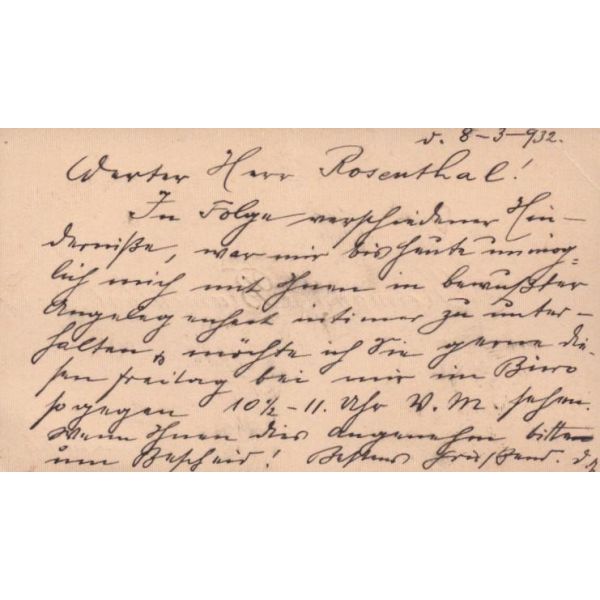 d. 8-3-932.
Werter Herr Rosenthal!
In Folge verschiedener Hin-
derniße, war mir bis heute unmög-
lich mich mit Ihnen in bewußter
Angelegenheit intimer zu unter-
halten, möchte ich Sie gerne die-
sen Freitag bei mir im Büro
so gegen 10½-11. Uhr V. M. sehen.
Wenn Ihnen dies angenehm bitten
um Bescheid! Bestens Grüßend. d.